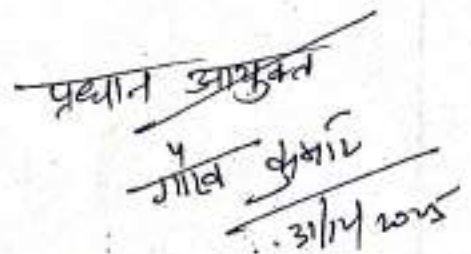 प्रधान आयुक्त
गौरव कुमार
31/12/2025